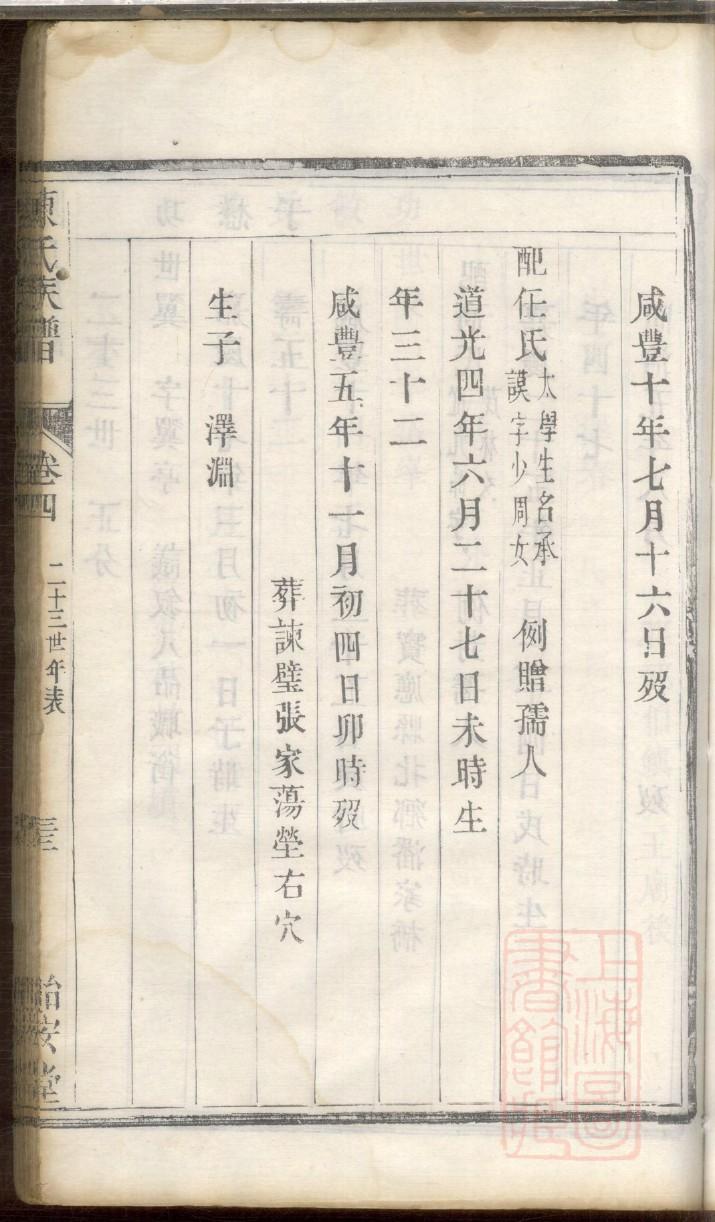 咸豐十年七月十六日歿
配任氏太學生名承
謨字少周女 例贈孺人
道光四年六月二十七日未時生
年三十二
咸豐五年十一月初四日卯時歿
葬諫壁張家蕩塋右穴
生子 澤淵
陳氏族譜 卷四 二十三世年表 怡安堂
上海圖書館藏